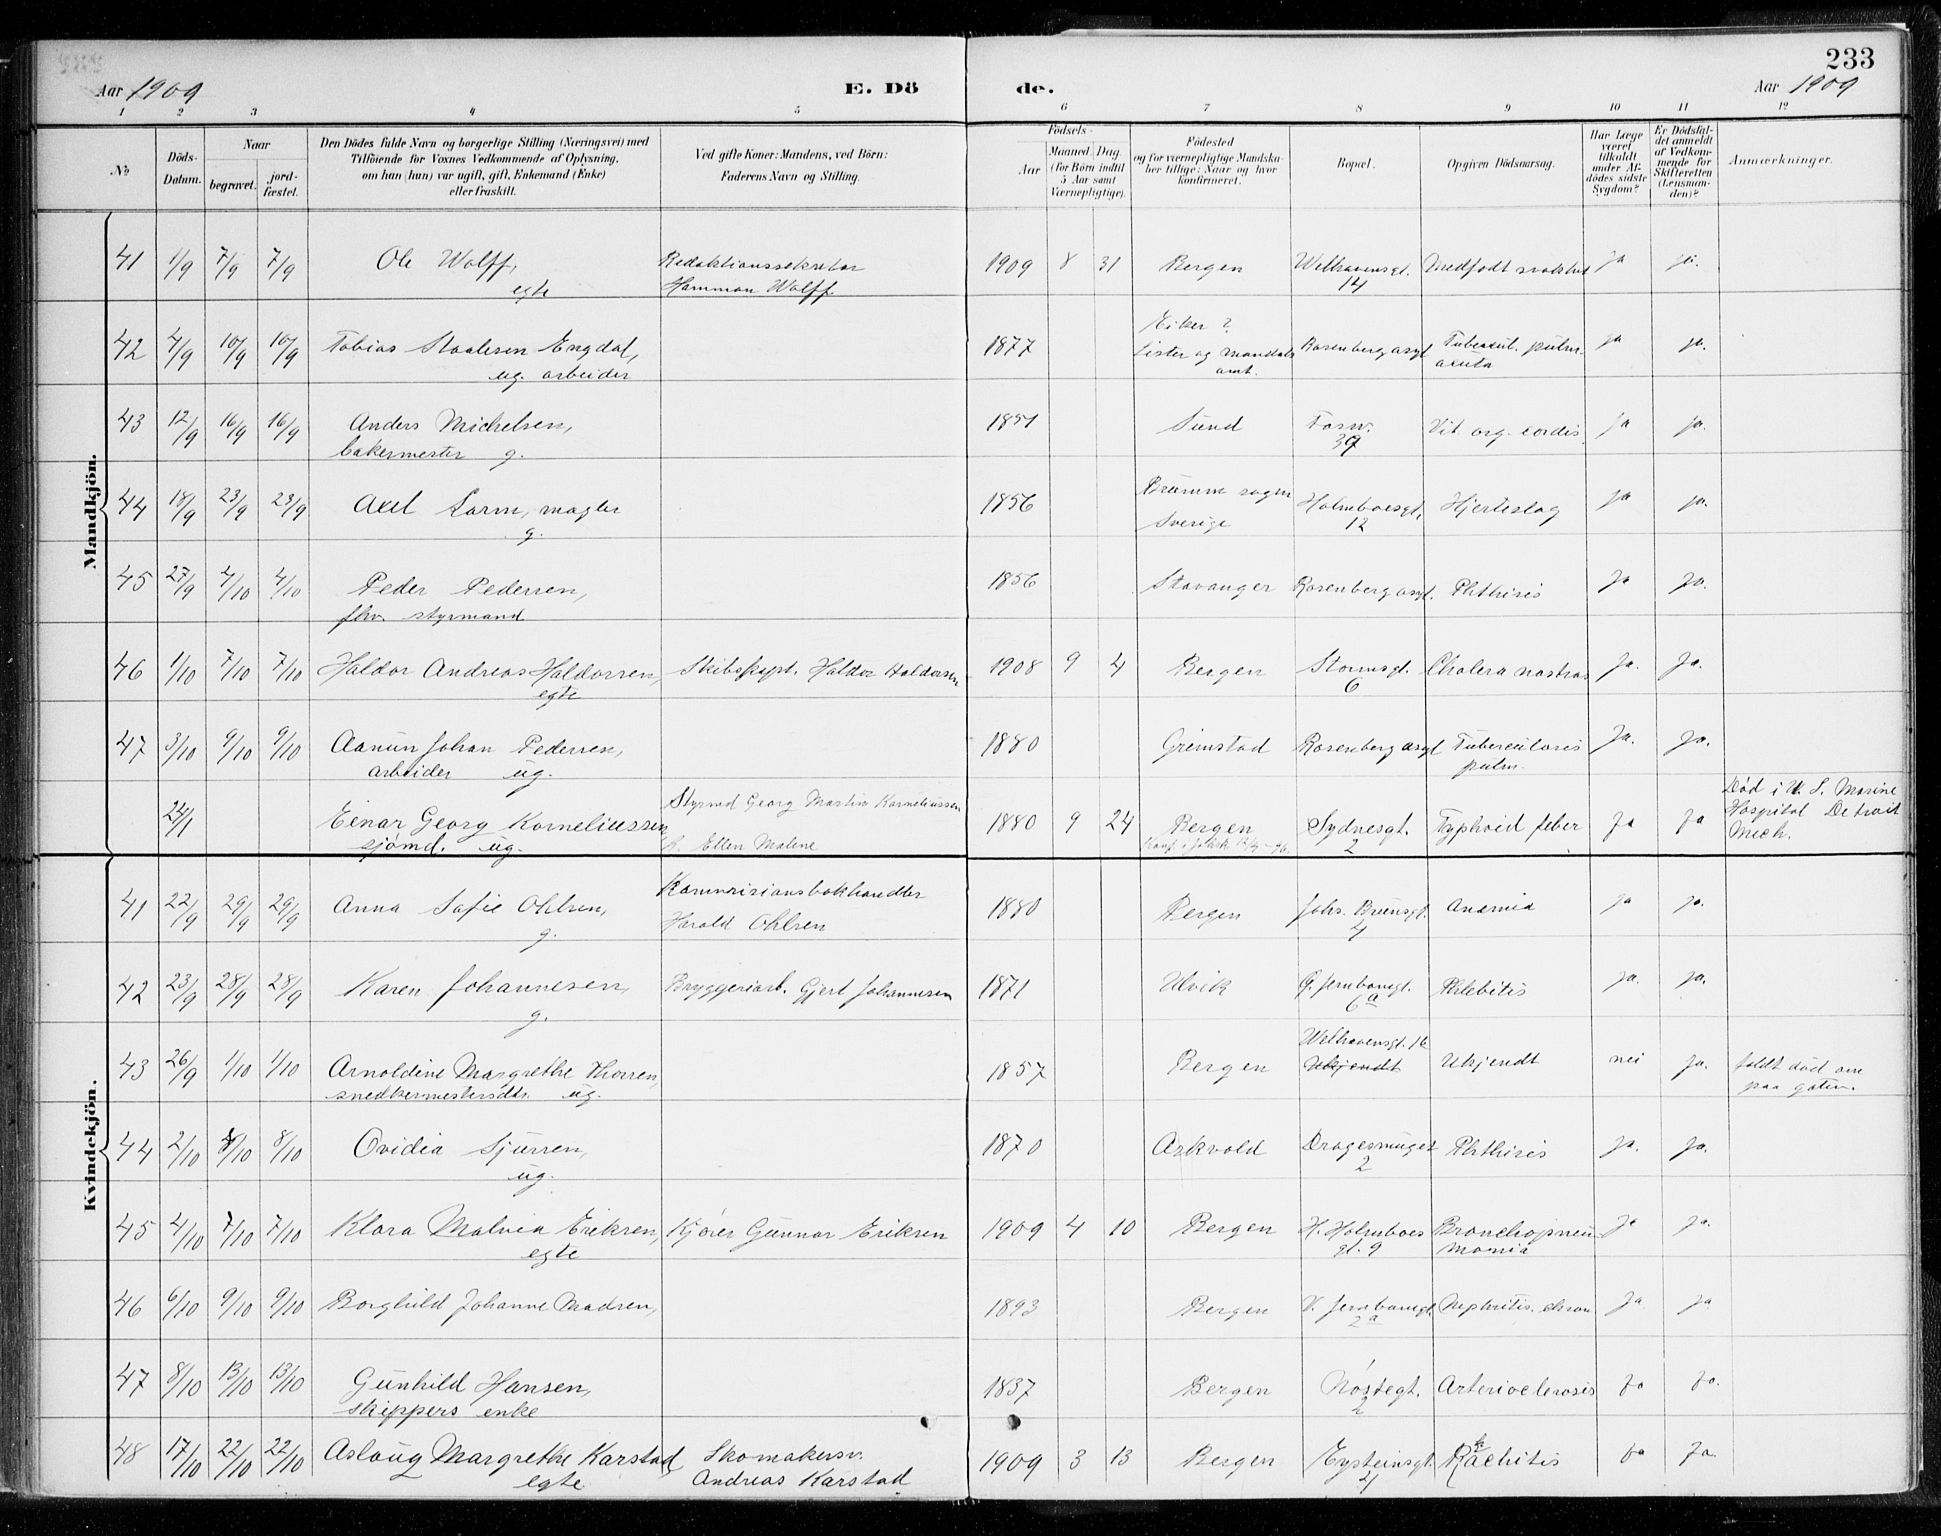 233
Aar 1909 E. Dö de. Aar 1909
1 2 3 4 5 6 7 8 9 10 11 12
№
Döds-Datum.
Naar
begravet.
jord-fæstet.
Den Dödes fulde Navn og borgerlige Stilling (Næringsvei) med
Tilföiende for Voxnes Vedkommende af Oplysning,
om han (hun) var ugift, gift, Enkemand (Enke)
eller fraskilt.
Ved gifte Koner: Mandens, ved Börn:
Faderens Navn og Stilling.
Födsels-
Aar
Maaned Dag
(for Börn indtil
5 Aar samt
Værnepligtige).
Födested
og for værnepligtige Mandska-
ber tillige: Naar og hvor
konfirmeret.
Bopæl.
Opgiven Dödsaarsag.
Har Læge
været
tilkaldt
under Af-
dödes sidste
Sygdom?
Er Dödsfal-
det anmeldt
af Vedkom-
mende for
Skifteretten
(Lensman-
den)?
Anmærkninger.
Mandkjön.
41 1/9 7/9 7/9 Ole Wolff, Redaktionssekretær 1909 8 31 Bergen Welhavensgt. Medfødt svakhed ja ja.
egte Hamman Wolff 14
42 4/9 10/9 10/9 Tobias Staalesen Engdal, 1877 Eiker? Rosenberg asyl Tubercul. pulm. ja ja.
ug. arbeider Lister og Mandals acuta
amt.
43 12/9 16/9 16/9 Anders Michelsen, 1851 Sund Fosw. Vit. org. cordis. ja ja.
bakermester g. 39
44 18/9 23/9 23/9 Axel Lorm, mægler 1856 Holmboesgt. Hjerteslag ja ja.
g. Sverige 12
45 27/9 4/10 4/10 Peder Pedersen, 1856 Stavanger Rosenberg asyl. Phthisis ja ja.
fhv. styrmand
46 1/10 7/10 7/10 Haldor Andreas Haldorsen, Skibskapt. Haldor Haldorsen 1908 9 4 Bergen Stormsgt. Cholera nostras ja. ja.
egte 6
47 3/10 9/10 9/10 Aanun Johan Pedersen, 1880 Grimstad Rosenberg asyl Tuberculosis ja. ja.
arbeider ug. pulm.
24/1 Einar Georg Korneliussen Styrmd Georg Martin Korneliussen 1880 9 24 Bergen Sydnesgt. Typhoid feber ja ja Død i U. S. Marine
sjømd. ug. & Ellen Malene Konf. i Johsk 2 Hospital Detroit
Mich.
Kvindekjön.
41 22/9 29/9 29/9 Anna Sofie Ohlsen, Kommisionsbokhandler 1880 Bergen Johs. Bruunsgt. Anæmia ja ja.
g. Harald Ohlsen 4
42 23/9 28/9 28/9 Karen Johannesen, Bryggeriarb. Gjert Johannesen 1871 Ulvik G. Jernbanegt. Phlebitis ja. ja.
g. 6a
43 26/9 1/10 1/10 Arnoldine Margrethe Thorsen, 1857 Bergen Welhavensgt. 16 Ukjendt nei ja. faldt død om
snedkermestersdtr. ug. Ukjendt paa gaten.
44 2/10 8/10 8/10 Ovidia Sjursen, 1870 Askvold Dragesmuget Phthisis ja. ja.
ug. 2
45 4/10 7/10 7/10 Klara Malvia Eriksen, Kjører Gunnar Eriksen 1909 4 10 Bergen H. Holmboes Bronchopneu ja ja.
egte gt. 9 monia
46 6/10 9/10 9/10 Borghild Johanne Madsen, 1893 Bergen V. Jernbanegt. Nephritis. chron ja ja
2a
47 8/10 13/10 13/10 Gunhild Hansen, 1837 Bergen Nøstegt. Arteriosclerosis ja ja.
skippers enke 2
48 17/10 22/10 22/10 Aslaug Margrethe Karstad, Skomakersv. 1909 3 13 Bergen Eysteinsgt. Rachitis ja ja.
egte Andreas Karstad 4